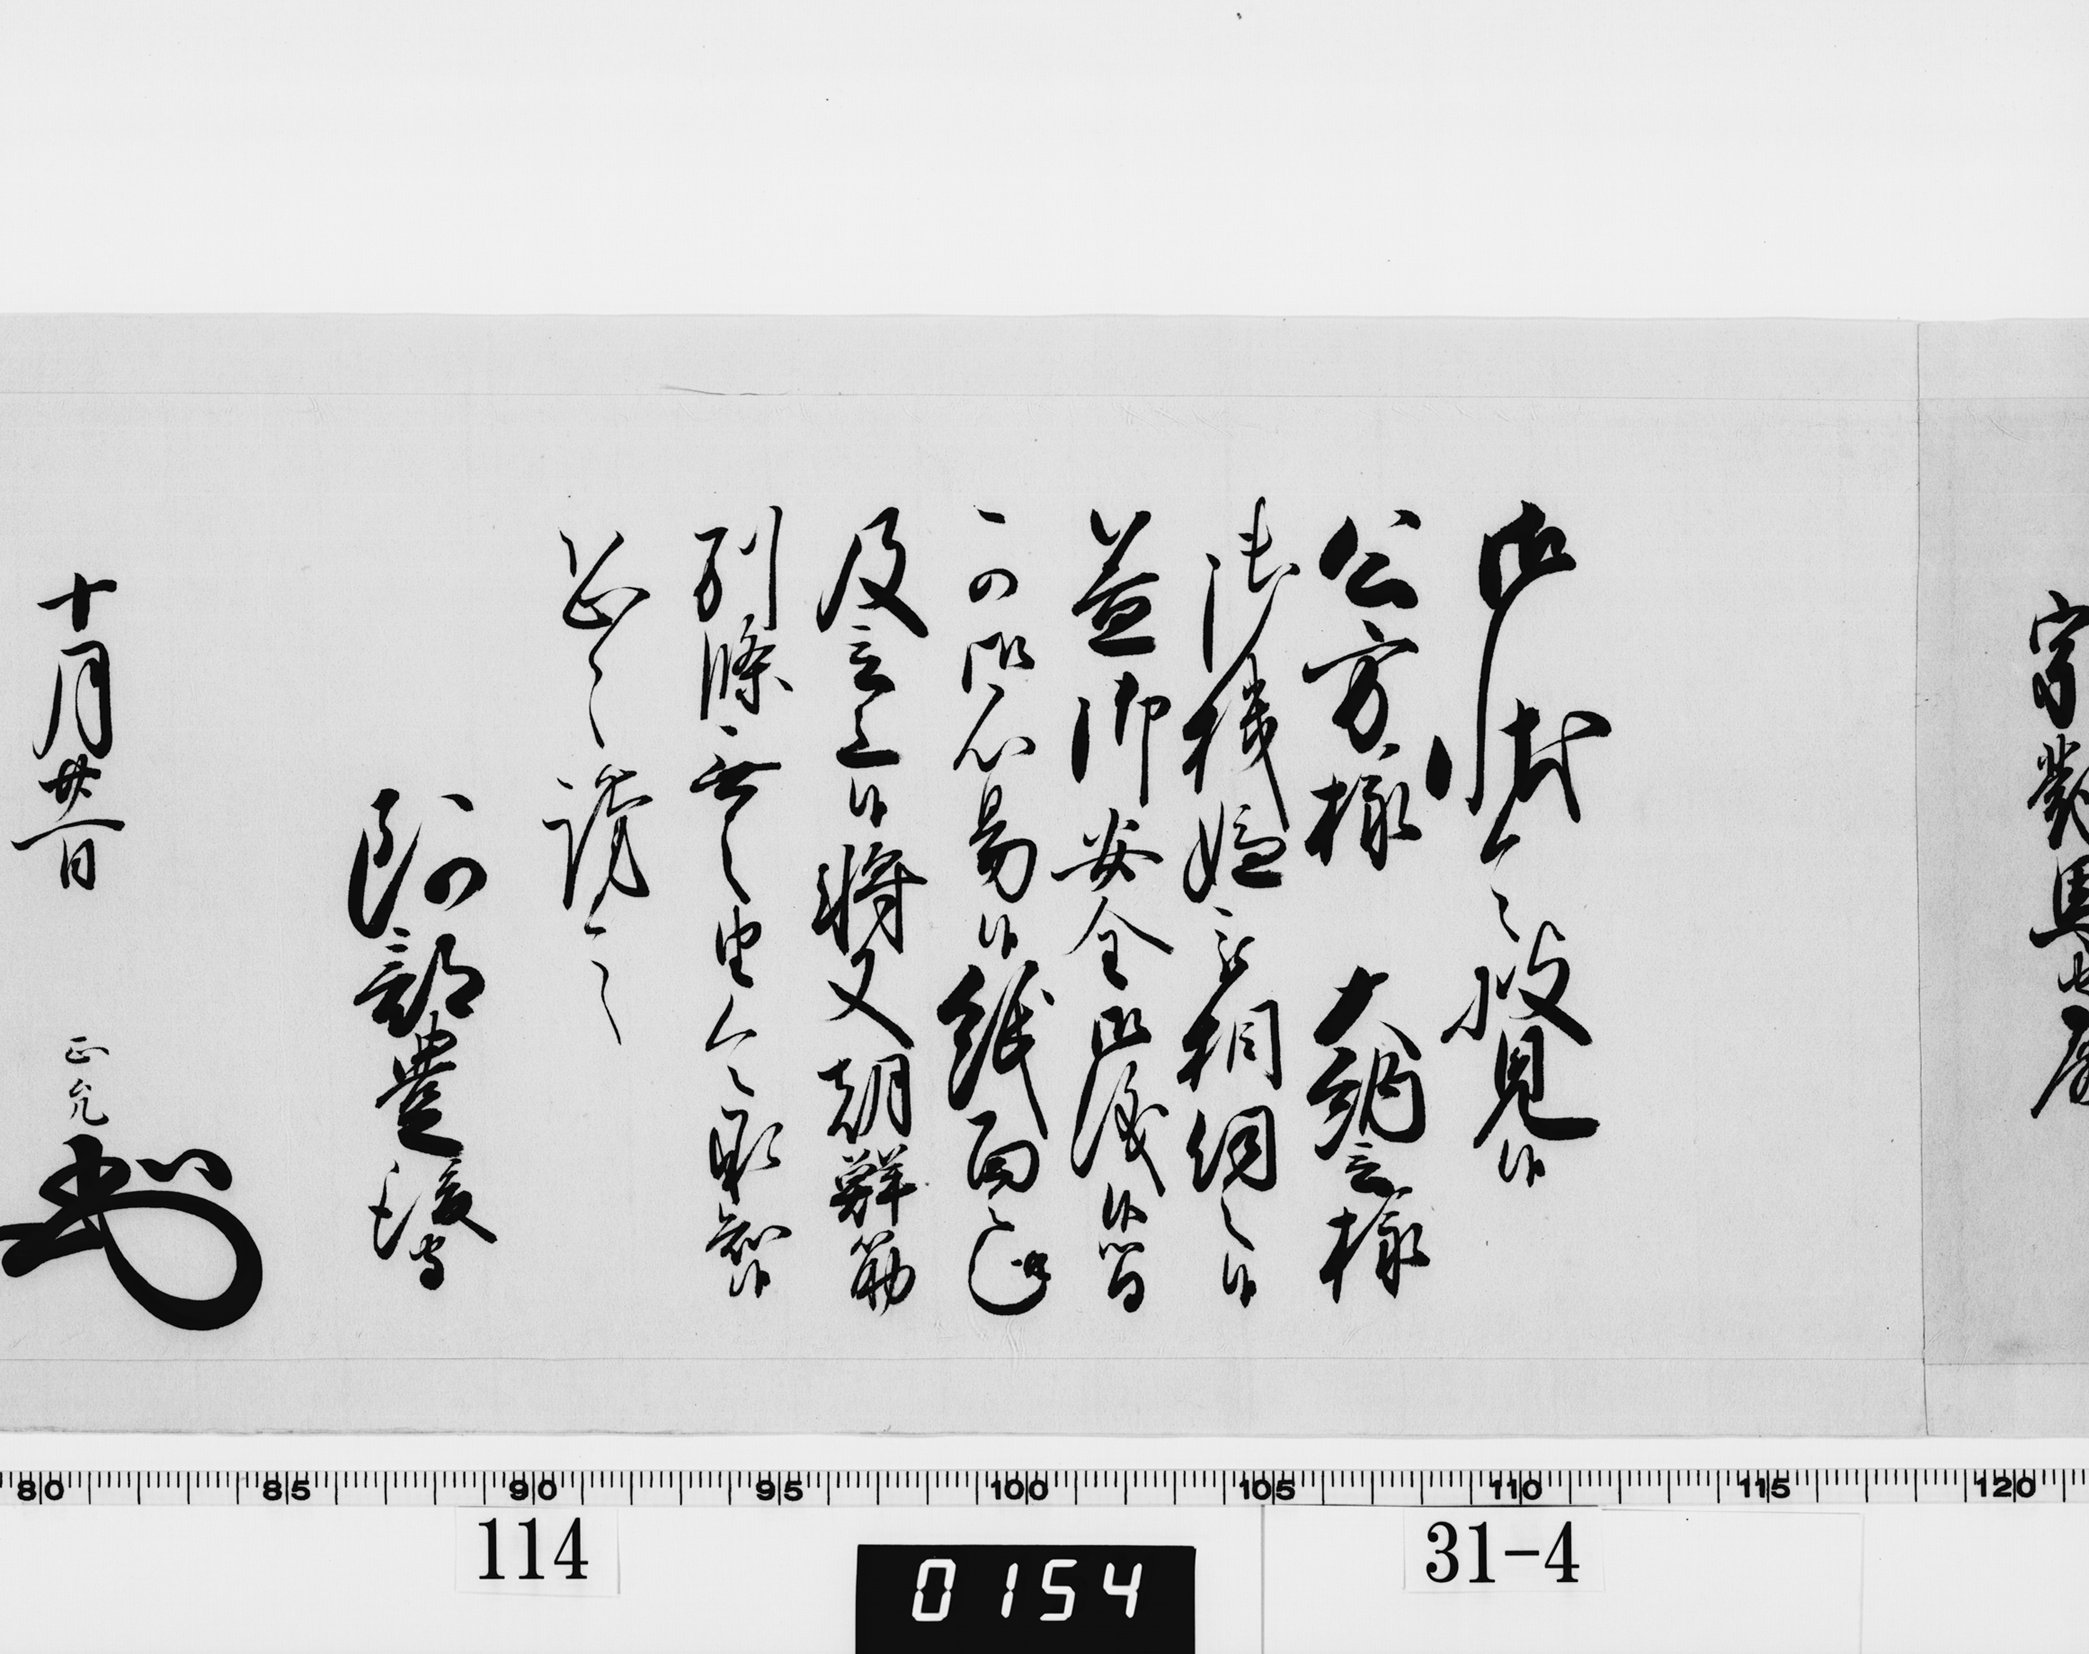 宗對馬守殿
御状令披見候
公方様 大納言様
御機嫌被相伺之候
益御安全御儀候間
可御心易候紙面趣
及言上候将又朝鮮筋
別條無之由令承知候
恐々謹言
阿部豊後守
十月廿一日
正允
80 85 90 95 100 105 110 115 120
114
31-4
0154